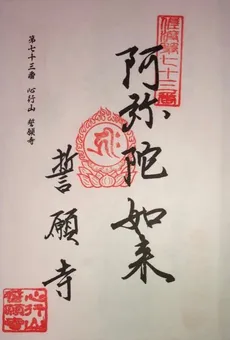 七十三番
阿弥陀如来
誓願寺
第七十三番 心行山 誓願寺
心行山
誓願寺